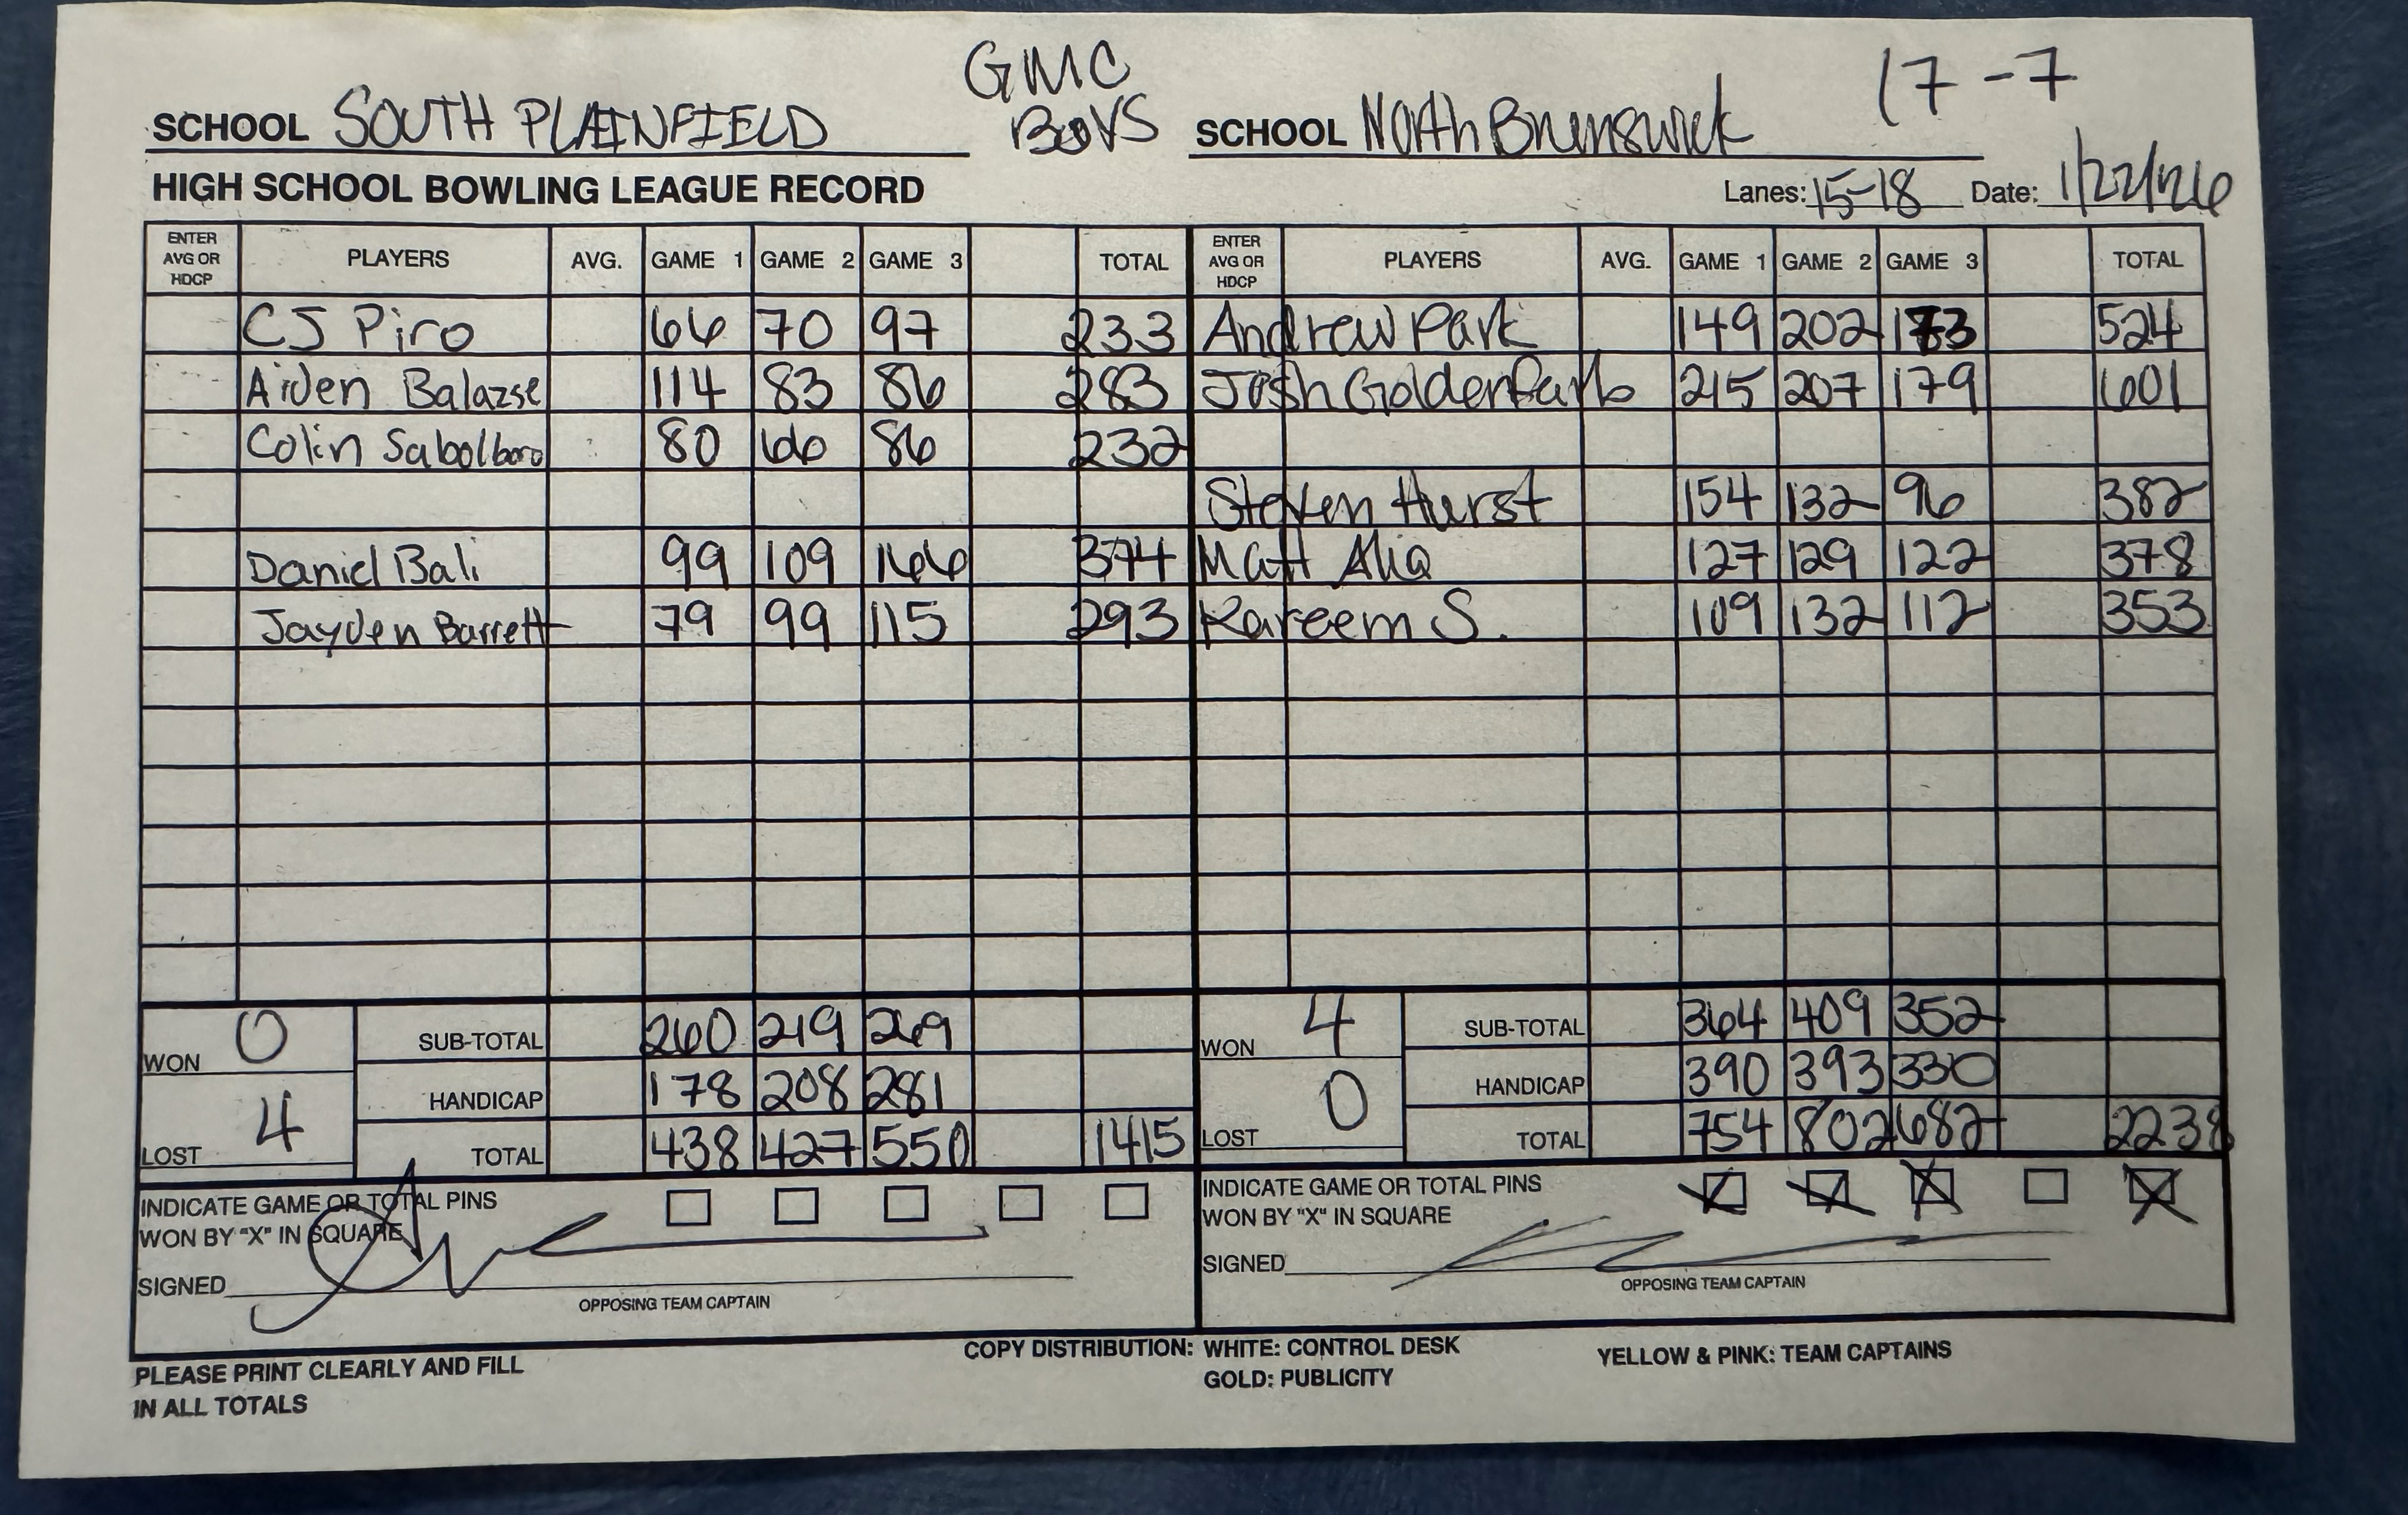 GMC
BOYS
17-7
SCHOOL SOUTH PLAINFIELD SCHOOL North Brunswick
HIGH SCHOOL BOWLING LEAGUE RECORD Lanes: 15-18 Date: 1/22/26
ENTER AVG OR HDCP PLAYERS AVG. GAME 1 GAME 2 GAME 3 TOTAL ENTER AVG OR HDCP PLAYERS AVG. GAME 1 GAME 2 GAME 3 TOTAL
CJ Piro 66 70 97 233 Andrew Park 149 202 173 524
Aiden Balazse 114 83 86 283 Josh Goldenfarb 215 207 179 601
Colin Sabolboro 80 66 86 232
Steven Hurst 154 132 96 382
Daniel Bali 99 109 166 374 Matt 127 129 122 378
Jayden Barrett 79 99 115 293 Kareem S. 109 132 112 353
WON 0 SUB-TOTAL 260 219 269 WON 4 SUB-TOTAL 364 409 352
HANDICAP 178 208 281 HANDICAP 390 393 330
LOST 4 TOTAL 438 427 550 1415 LOST 0 TOTAL 754 802 682 2238
INDICATE GAME OR TOTAL PINS INDICATE GAME OR TOTAL PINS
WON BY "X" IN SQUARE WON BY "X" IN SQUARE
SIGNED SIGNED
OPPOSING TEAM CAPTAIN OPPOSING TEAM CAPTAIN
COPY DISTRIBUTION: WHITE: CONTROL DESK YELLOW & PINK: TEAM CAPTAINS
GOLD: PUBLICITY
PLEASE PRINT CLEARLY AND FILL
IN ALL TOTALS